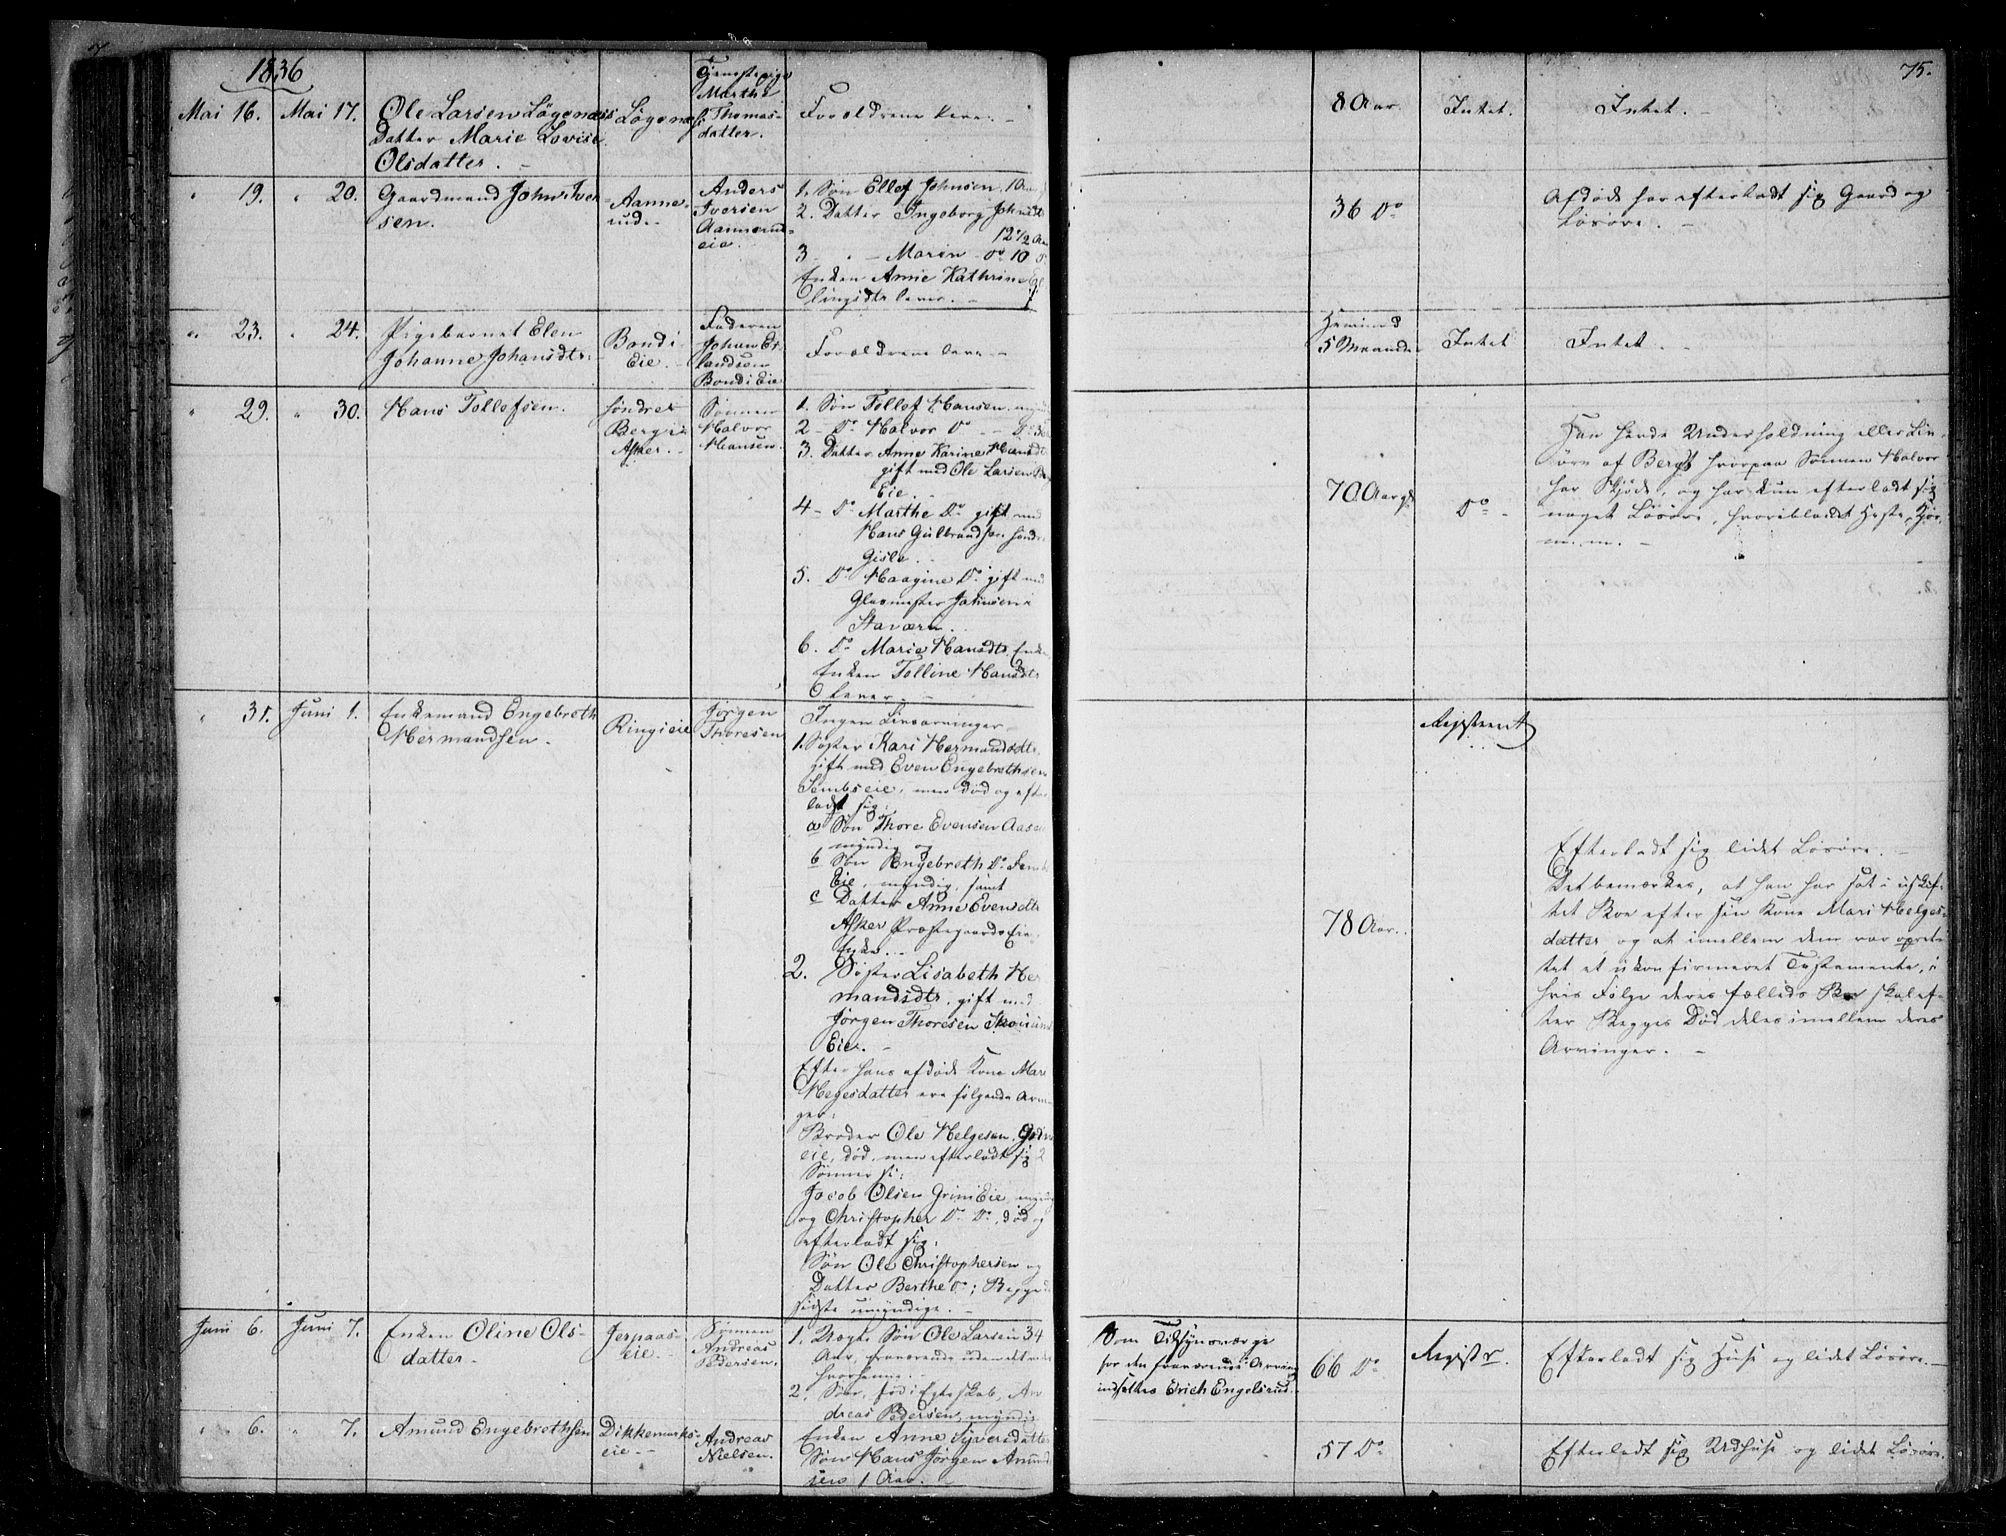 75.
1836
Mai 16. Mai 17. Ole Larsen Løgenæss
Datter Marie Lovise
Olsdatter.
Løgenæs
Tjenestepige
Marthe
Thomas-
datter.
Forældrene leve.
8 Aar. Intet. Intet.
" 19. " 20. Gaardmand John Iver
sen.
Aanne-
rud.
Anders
Iversen
Aannerud-
eie.
1. Søn Ellef Johnsen, 10
2. Datter Ingeborg Johnsdt
12 1/2 Aar
3 " Maren Do 10
Enken Anne Kathrine
lingsdtr lever.
36 Do
Afdøde har efterladt sig Gaard og
Løsøre.
" 23. " 24. Pigebarnet Elen
Johanne Johansdtr.
Bondi
Eie.
Faderen
Johan Er
landsen
Bondi Eie
Forældrene leve
5 Maaneder
Intet Intet.
" 29. " 30. Hans Tollefsen.
søndre
Berg i
Asker.
Sønnen
Halvor
Hansen.
1. Søn Tollef Hansen
2 Do Halvor Do
3. Datter Anne Karine Hansdtr
gift med Ole Larsen
Eie.
4 Do Marthe Do gift med
Hans Gulbrandsen søndre
Gisle.
5. Do Haagine Do gift med
Glasmester Johnsen i
Staværn.
6. Do Marie Hansdtr. Enke
Enken Tolline Hansdtr
lever.
70 Aar Do
Han havde Underholdning eller Liv-
øre af Berg, hvorpaa Sønnen Halvor
har Skjøde, og har kun efterladt sig
noget Løsøre, hvoriblandt Heste, Kjør,
m.m.
" 31. Juni 1. Enkemand Engebreth
Hermandsen.
Ringi eie
Jørgen
Thoresen
Ingen Livsarvinger
1. Søster Kari Hermandsdtr.
gift med Even Engebrethsen
Sembs eie, men død og efter
ladt sig:
a Søn Thore Evensen Aasen
myndig og
b Søn Engebreth Do Sem
Eie, myndig, samt
c Datter Anne Evensdtr
Asker Præstegaards Eie
Enke.
2. Søster Lisabeth Her
mandsdtr, gift med
Jørgen Thoresen
Eie.
Efter hans afdøde Kone Mari
Hegesdatter ere følgende Arvin
ger:
Broder Ole Helgesen,
eie, død, men efterladt sig 2
Sønner
Jacob Olsen Grini Eie, myndig
og Christopher Do Do, død og
efterladt sig:
Søn Ole Christophersen og
Datter Berthe Do; Begge
sidste umyndige.
78 Aar.
Registreret
Efterladt sig lidet Løsøre.
Det bemærkes, at han har sat i uskif-
tet Boe efter sin Kone Mari Helges-
datter og at imellem dem var opret-
tet et ukonfirmeret Testamente, i
hvis Følge deres fælleds Boe skal ef-
ter Begges Død deles imellem deres
Arvinger.
Juni 6. Juni 7. Enken Oline Ols-
datter.
Jerpaas-
eie.
Sønnen
Andreas
Pedersen.
1. Uægte Søn Ole Larsen 34
Aar, fraværende uden at vides
hvorhenne.
2. Søn, fød i Egteskab, An
dreas Pedersen, myndig
Som Tilsynsværge
for den fraværende Arving
indsattes Erich Engelsrud.
66 Do Registr.
Efterladt sig Huse og lidet Løsøre.
" 6. " 7. Amund Engebrethsen
Dikkemarks-
eie.
Andreas
Nielsen.
Enken Anne Syversdatter
Søn Hans Jørgen Amund
sen 1 Aar.
57 Do
Efterladt sig Udhuse og lidet Løsøre.